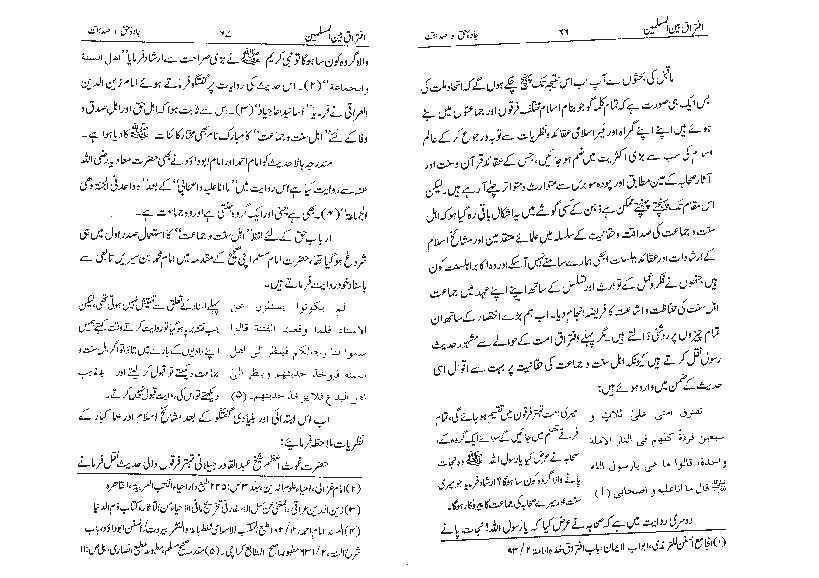 افتراق بین المسلمین ۶۶ جادۂ حق و صداقت
ماقبل کی بحثوں سے آپ سب اس نتیجہ تک پہنچ چکے ہوں گے کہ اتحاد ملت کی
بس ایک ہی صورت ہے کہ تمام کلمہ گو جو بنام اسلام مختلف فرقوں اور جماعتوں میں بٹے
ہوئے ہیں اپنے اپنے گمراہ اور غیر اسلامی عقائد و نظریات سے توبہ و رجوع کرکے عالم
اسلام کی سب سے بڑی اکثریت میں ضم ہو جائیں، جس کے عقائد قرآن و سنت اور
آثار صحابہ کے عین مطابق اور چودہ سو برس سے متوارث و متواتر چلے آرہے ہیں۔ لیکن
اس مقام تک پہنچتے پہنچتے ممکن ہے ذہن کے کسی گوشے میں یہ اشکال باقی رہ گیا ہو کہ اہل
سنت و جماعت کی صداقت و حقانیت کے سلسلہ میں علمائے متقدمین اور مشائخ اسلام
کے ارشادات اور عقائد اہلسنت ابھی ہمارے سامنے نہیں آسکے اور وہ اکابر اہلسنت کون
ہیں جنھوں نے فکر و عمل کے توارث اور تسلسل کے ساتھ اپنے اپنے عہد میں جماعت
اہل سنت کی حفاظت و اشاعت کا فریضہ انجام دیا۔ اب ہم بڑے اختصار کے ساتھ ان
تمام چیزوں پر روشنی ڈالتے ہیں۔ مگر پہلے افتراق امت کے حوالے سے مشہور حدیث
رسول نقل کرتے ہیں کیونکہ اہل سنت و جماعت کی حقانیت پر بہت سے اقوال اسی
حدیث کے ضمن میں وارد ہوئے ہیں:
تفترق امتی علی ثلاث و
سبعین فرقة کلهم فی النار الاملة
واحدة، قالوا ما هی یارسول الله
ﷺ قال ما انا علیه و اصحابی (۱)
میری امت تہتر فرقوں میں تقسیم ہو جائے گی، تمام
فرقے جہنم میں جائیں گے سوائے ایک گروہ کے،
صحابہ نے عرض کیا یارسول اللہ ﷺ وہ نجات
پانے والا گروہ کون سا ہوگا؟ ارشاد فرمایا جو میری
سنت اور میرے صحابہ کی جماعت کا پیروکار ہوگا۔
دوسری روایت میں ہے کہ صحابہ نے عرض کیا کہ یارسول اللہ! نجات پانے
(۱) الجامع السنن للترمذی، ابواب الایمان، باب افتراق ھذہ الامۃ: ۲/ ۹۳
افتراق بین المسلمین ۶۷ جادۂ حق و صداقت
والا گروہ کون سا ہوگا تو نبی کریم ﷺ نے بڑی صراحت سے ارشاد فرمایا "اهل السنة
والجماعة" (۲)۔ اس حدیث کی روایت پر گفتگو فرماتے ہوئے امام زین الدین
العراقی نے فرمایا "اسانیدها جیاد" (۳)۔ جس سے ثابت ہوا کہ اہل حق اور اہل صدق و
وفا کے لئے "اہل سنت و جماعت" کا مبارک نام بھی مختار کائنات ﷺ کا دیا ہوا ہے۔
مندرجہ بالا حدیث کو امام احمد اور امام ابوداؤد نے بھی حضرت معاویہ رضی اللہ
عنہ سے روایت کیا ہے اس روایت میں "ما انا علیه واصحابی" کے بعد
الجماعة" (۴)۔ بھی ہے یعنی اور ایک گروہ جنتی ہے اور وہ جماعت ہے۔
ارباب حق کے لئے لفظ "اہل سنت و جماعت" کا استعمال صدر اول میں ہی
شروع ہو گیا تھا، حضرت امام مسلم اپنی صحیح کے مقدمہ میں امام محمد بن سیرین تابعی سے
باسناد خود روایت فرماتے ہیں۔
لم یکونوا یسئلون عن
الاسناد فلما وقعت الفتنة قالوا
سموا لنا رجالکم فینظر الی اهل
السنة فیوخذ حدیثهم وینظر الی
اهل البدع فلا یوخذ حدیثهم۔ (۵)
پہلے اسناد کے تعلق سے تفتیش نہیں ہوتی تھی، لیکن
جب فتنہ برپا ہوگیا تو روایت کرتے وقت کہتے ہمیں
اپنے راویوں کے بارے میں بتاؤ تو اگر اہل سنت و
جماعت دیکھتے تو قبول کر لیتے اور بد مذہب
دیکھتے تو اس کی روایت قبول نہیں کرتے۔
اب اس ابتدائی اور بنیادی گفتگو کے بعد مشائخ اسلام اور علما کبار کے
نظریات ملاحظہ فرمائیے:
حضرت غوث اعظم شیخ عبدالقادر جیلانی تہتر فرقوں والی حدیث نقل فرمانے
(۲) امام غزالی، احیاء علوم الدین، جلد ۳ ص: ۲۲۵ طبع دار احیاء الکتب العربیۃ، القاھرہ
(۳) زین الدین عراقی، المغنی عن حمل الاسفار فی تخریج مافی الاحیاء من الاخبار کتاب ذم الدنیا
(۴) المسند امام احمد،
شرح السنۃ، ۲/ ۶۳۱ مطبوعہ اصح المطابع کراچی۔ (۵) مقدمہ صحیح مسلم، مطبوعہ مطبع انصاری، دہلی ص: ۱۱